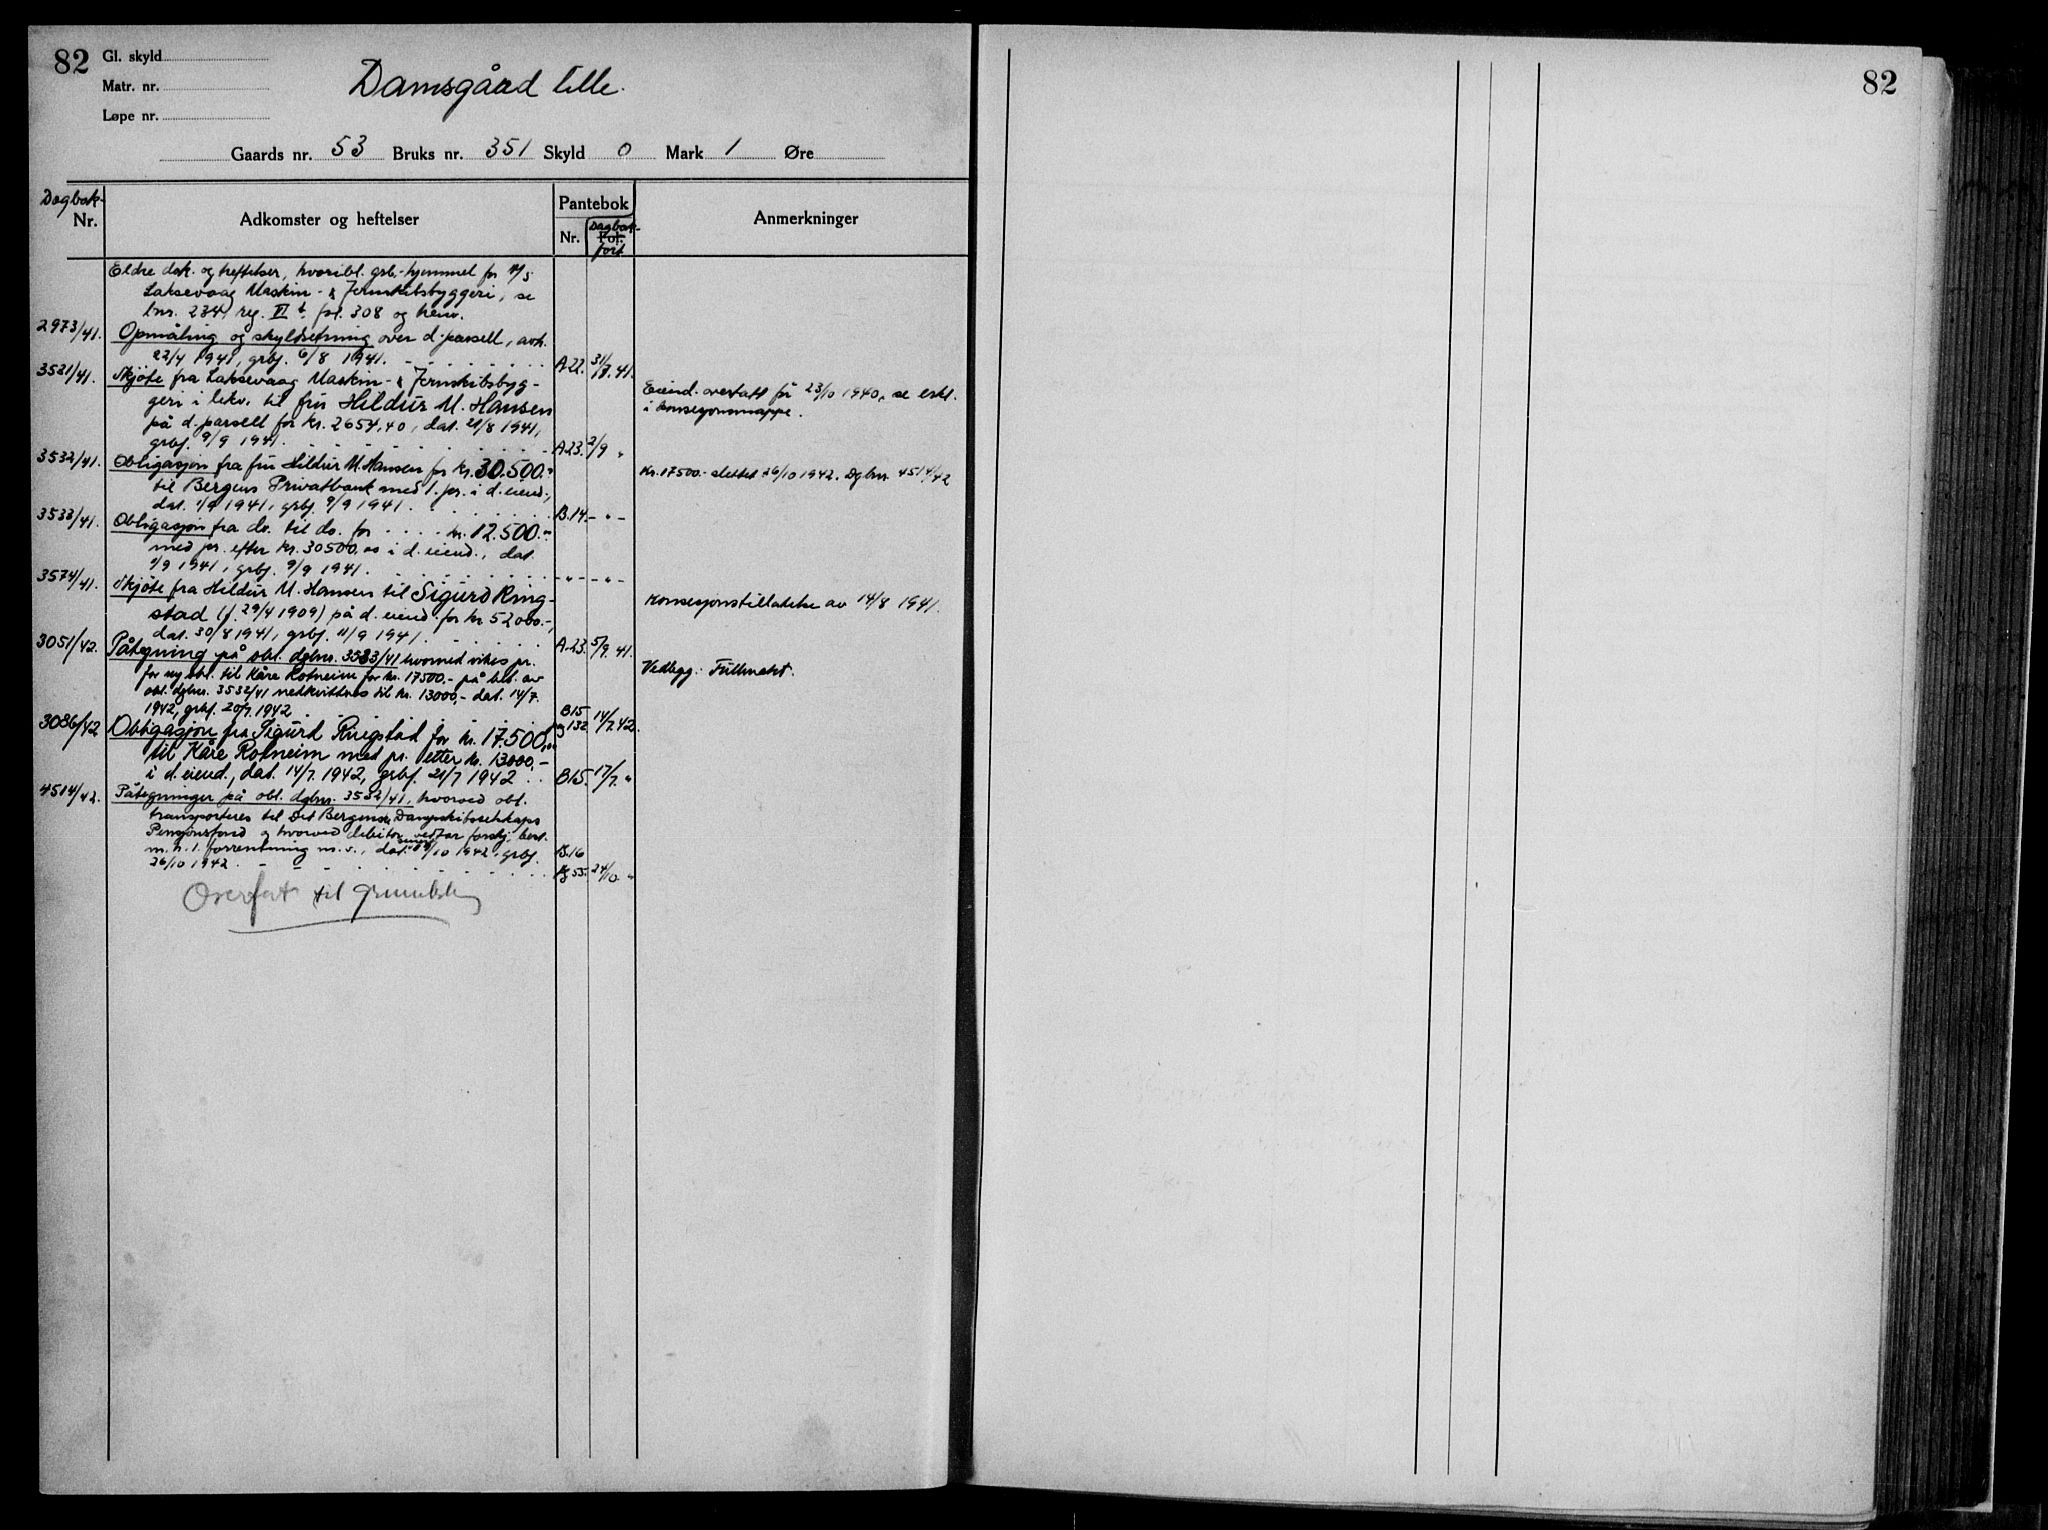 82
Gl. skyld
Matr. nr.
Løpe nr.
Damsgård lille.
Gaards nr. 53 Bruks nr. 351 Skyld 0 Mark 1 Øre
Dagbok-
Nr.
Adkomster og heftelser
Pantebok
Nr.
Dagbok-
Fol.
ført
Anmerkninger
Eldre dok. og heftelser, hvoribl. grb.-hjemmel for A/S
Laksevaag Maskin- & Jernskibsbyggeri, se
bnr. 234, reg. VI fol. 308 og henv.
2973/41. Opmåling og skyldsetning over d. parsell, avh.
22/4 1941, grbf. 6/8 1941. A.22. 31/7.41.
3531/41. Skjøte fra Laksevaag Maskin- & Jernskibsbyg-
geri i lekv. til fru Hildur M. Hansen
på d. parsell for kr. 2654,40, dat. 21/8 1941,
grbf. 9/9 1941. A.23. 2/9 "
Eiend. overtatt før 23/10 1940, se erkl.
i konsesjonsmappe.
3532/41. Obligasjon fra fru Hildur M. Hansen for kr. 30.500.-
til Bergens Privatbank med 1. pr. i d. eiend.,
dat. 1/9 1941, grbf. 9/9 1941. B.14. - " -
Kr. 17500.- slettet 26/10 1942. Dgbnr. 4514/42
3533/41. Obligasjon fra do. til do. for kr. 12.500.-
med pr. efter kr. 30500.00 i d. eiend., dat.
1/9 1941, grbf. 9/9 1941. - " - - " -
3574/41. Skjøte fra Hildur M. Hansen til Sigurd Ring-
stad (f. 29/4 1909) på d. eiend. for kr 52000.-,
dat. 30/8 1941, grbf. 11/9 1941. A.23. 5/9.41.
Konsesjonstillatelse av 14/8 1941.
3051/42. Påtegning på obl. dgbnr. 3533/41 hvorved vikes pr.
for ny obl. til Kåre Rotneim for kr. 17500.- på bet. av
obl. dgbnr. 3532/41 nedkvitteres til kr. 13000,- dat. 14/7
1942, grbf. 20/7 1942 B15
pg 132 14/7.42.
Vedlegg: Fullmakt.
3086/42 Obligasjon fra Sigurd Ringstad for kr. 17.500,00
til Kåre Rotneim med pr. etter kr. 13000,-
i d. eiend., dat. 14/7 1942, grbf. 21/7 1942. B15. 17/7. "
4514/42. Påtegninger på obl. dgbnr. 3532/41, hvorved obl.
transporteres til Det Bergenske Dampskibsselskaps
Pensjonsfond og hvorved debitor vedtar forskj. best.
m. h. t. forrentning m. v., dat. 19/10 1942, grbf.
26/10 1942. B.16
pg 55. 24/10. "
Overført til grunnbok
82